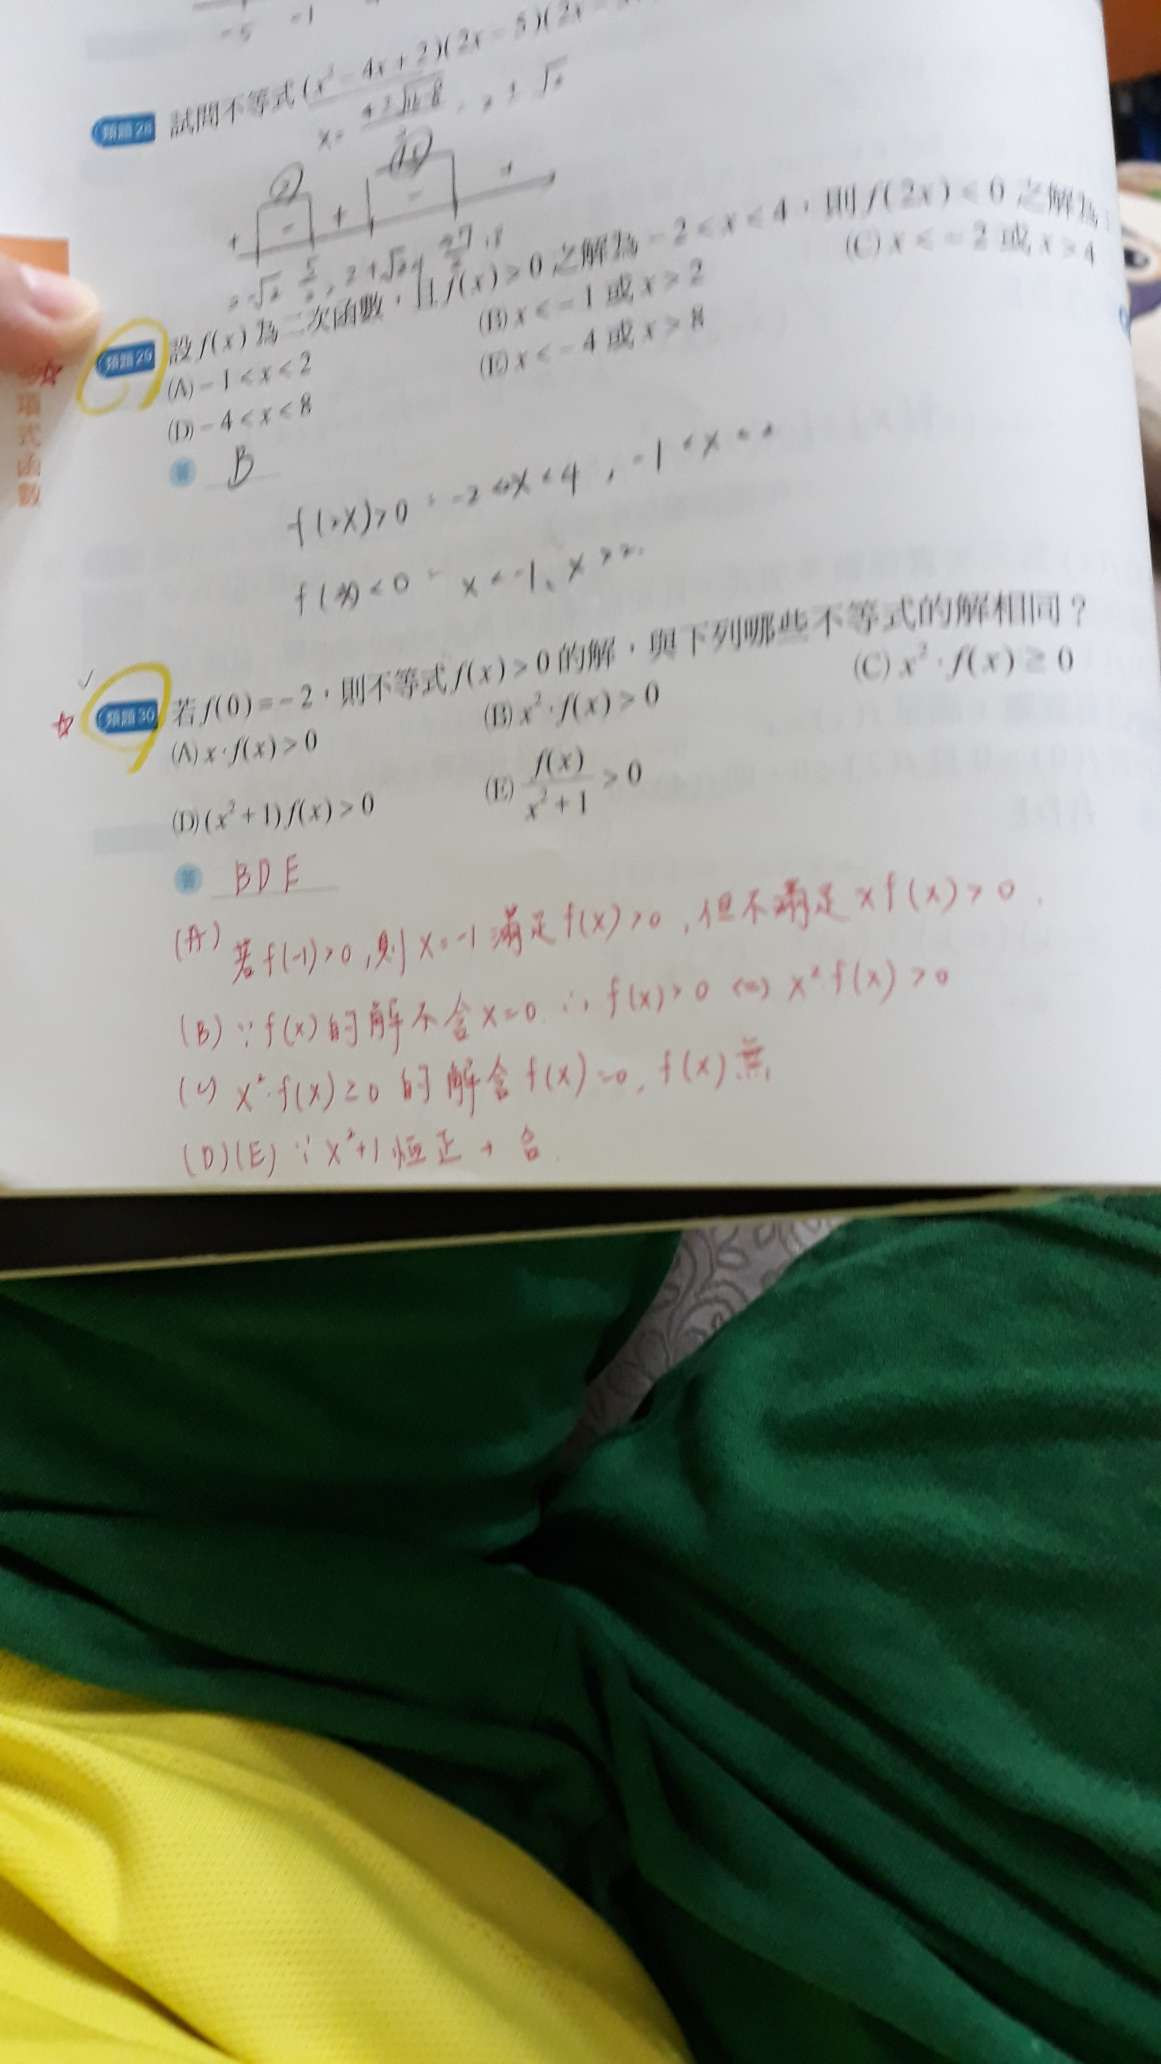 -5 -1
類題28 試問不等式(x²-4x+2)(2x-5)(2x-
x= 4±√16-8 / 2 = 2±√2
+ - + - +
2-√2 5/2 , 2+√2 27/2
類題29 設f(x)為二次函數,且f(x)>0之解為-2<x<4,則f(2x)<0之解為
(A)-1<x<2 (B)x<-1或x>2 (C)x<-2或x>4
(D)-4<x<8 (E)x<-4或x>8
答 B
f(2x)>0 -2<2x<4 , -1<x<2
f(2x)<0 x<-1、x>2
項式函數
類題30 若f(0)=-2,則不等式f(x)>0的解,與下列哪些不等式的解相同?
(A)x·f(x)>0 (B)x²·f(x)>0 (C)x²·f(x)≥0
(D)(x²+1)f(x)>0 (E) f(x)/x²+1 >0
答 BDE
(A) 若f(-1)>0,則x=-1滿足f(x)>0,但不滿足xf(x)>0.
(B) ∵f(x)的解不含x=0 ∴f(x)>0 ⇔ x²f(x)>0
(C) x²·f(x)≥0的解含f(x)=0, f(x)無
(D)(E) ∵x²+1恒正 → 合